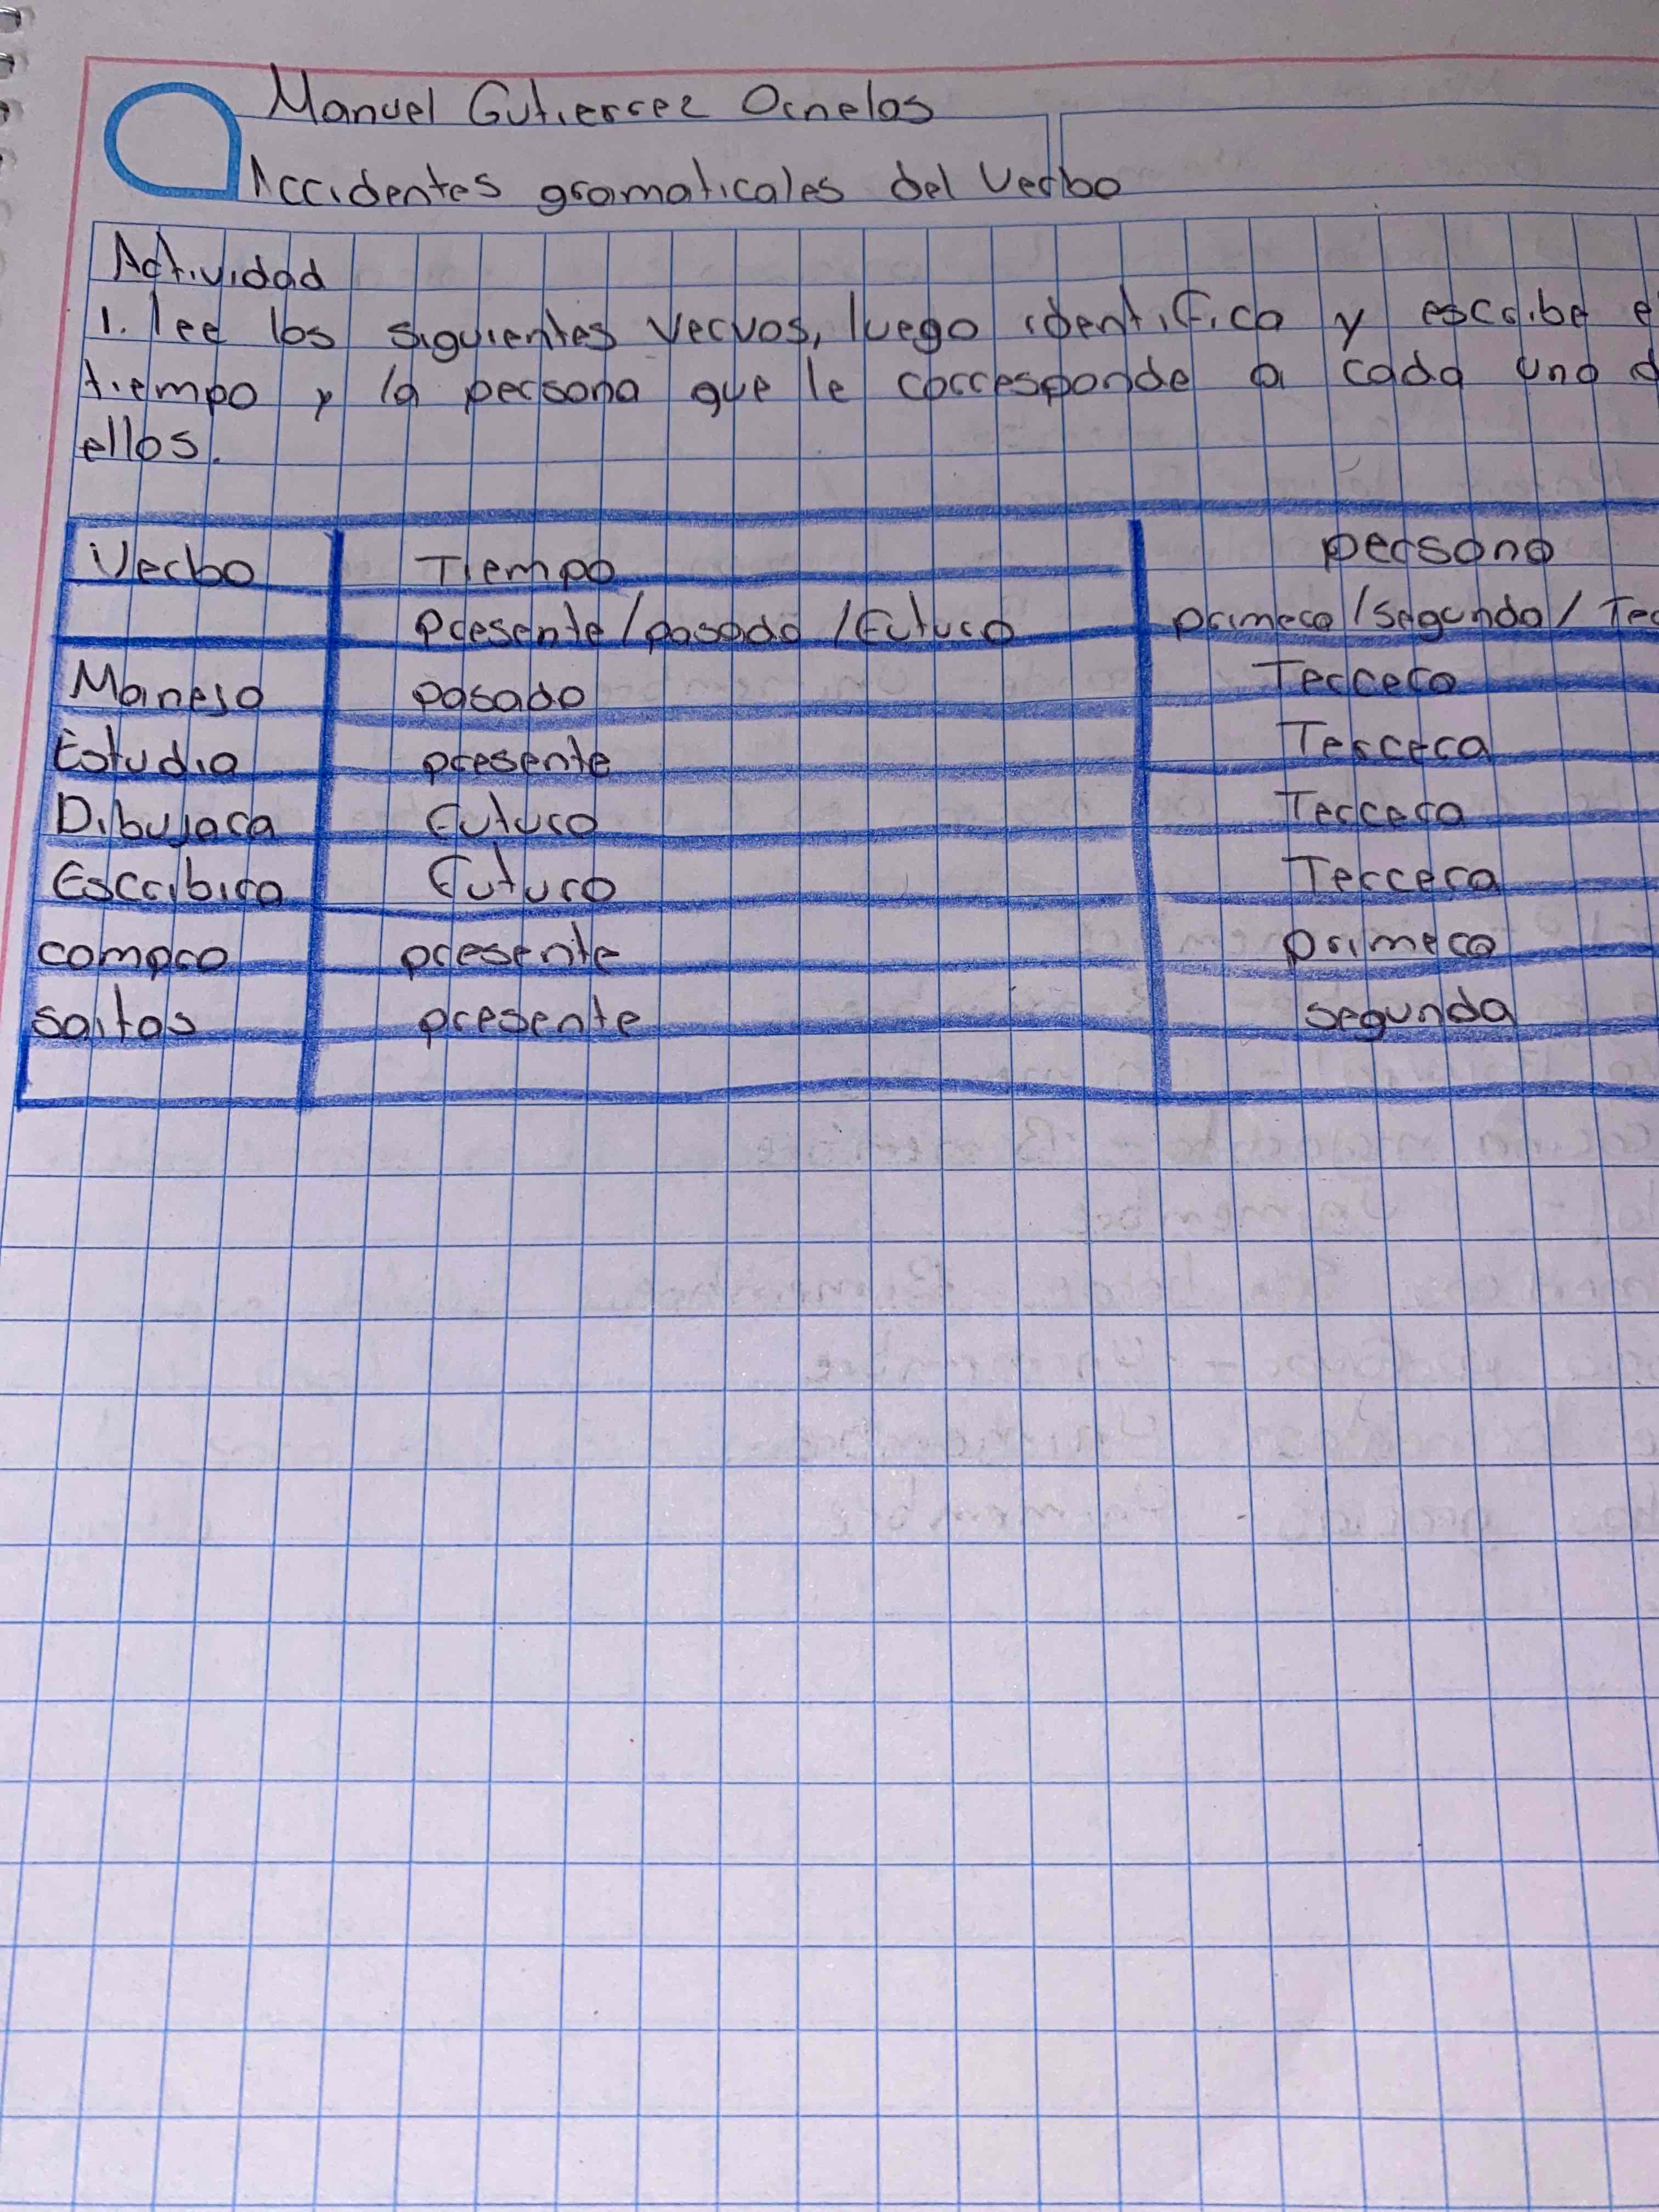 Manuel Gutierrez Ornelas
Accidentes gramaticales del Verbo
Actividad
1. lee los siguientes vervos, luego identifica y escribe e
tiempo y la persona que le corresponde a cada uno d
ellos.
Verbo Tiempo persona
presente/pasado/Futuro primera/segunda/Ter
Manejo pasado Tercera
Estudia presente Tercera
Dibujara Futuro Tercera
Escribira Futuro Tercera
compro presente primera
saltas presente segunda